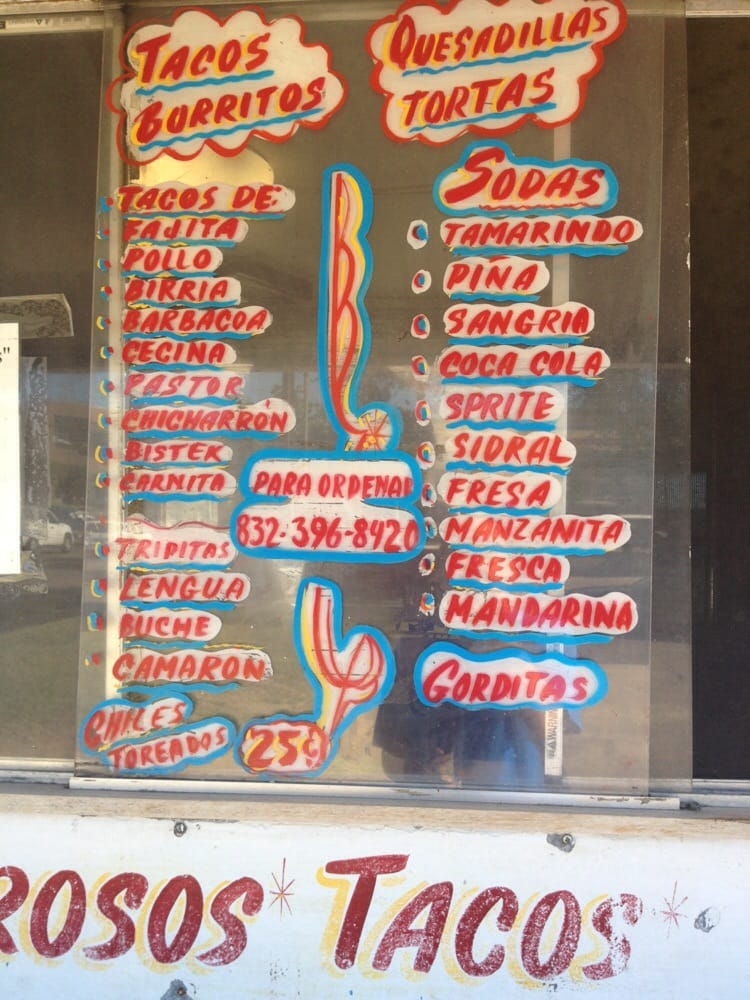 TACOS
BURRITOS
QUESADILLAS
TORTAS
TACOS DE:
FAJITA
POLLO
BIRRIA
BARBACOA
CECINA
PASTOR
CHICHARRÓN
BISTEK
CARNITA
TRIPITAS
LENGUA
BUCHE
CAMARON
CHILES
TOREADOS
25¢
PARA ORDENAR
832-396-8420
SODAS
TAMARINDO
PIÑA
SANGRIA
COCA COLA
SPRITE
SIDRAL
FRESA
MANZANITA
FRESCA
MANDARINA
GORDITAS
WARNING
ROSOS TACOS